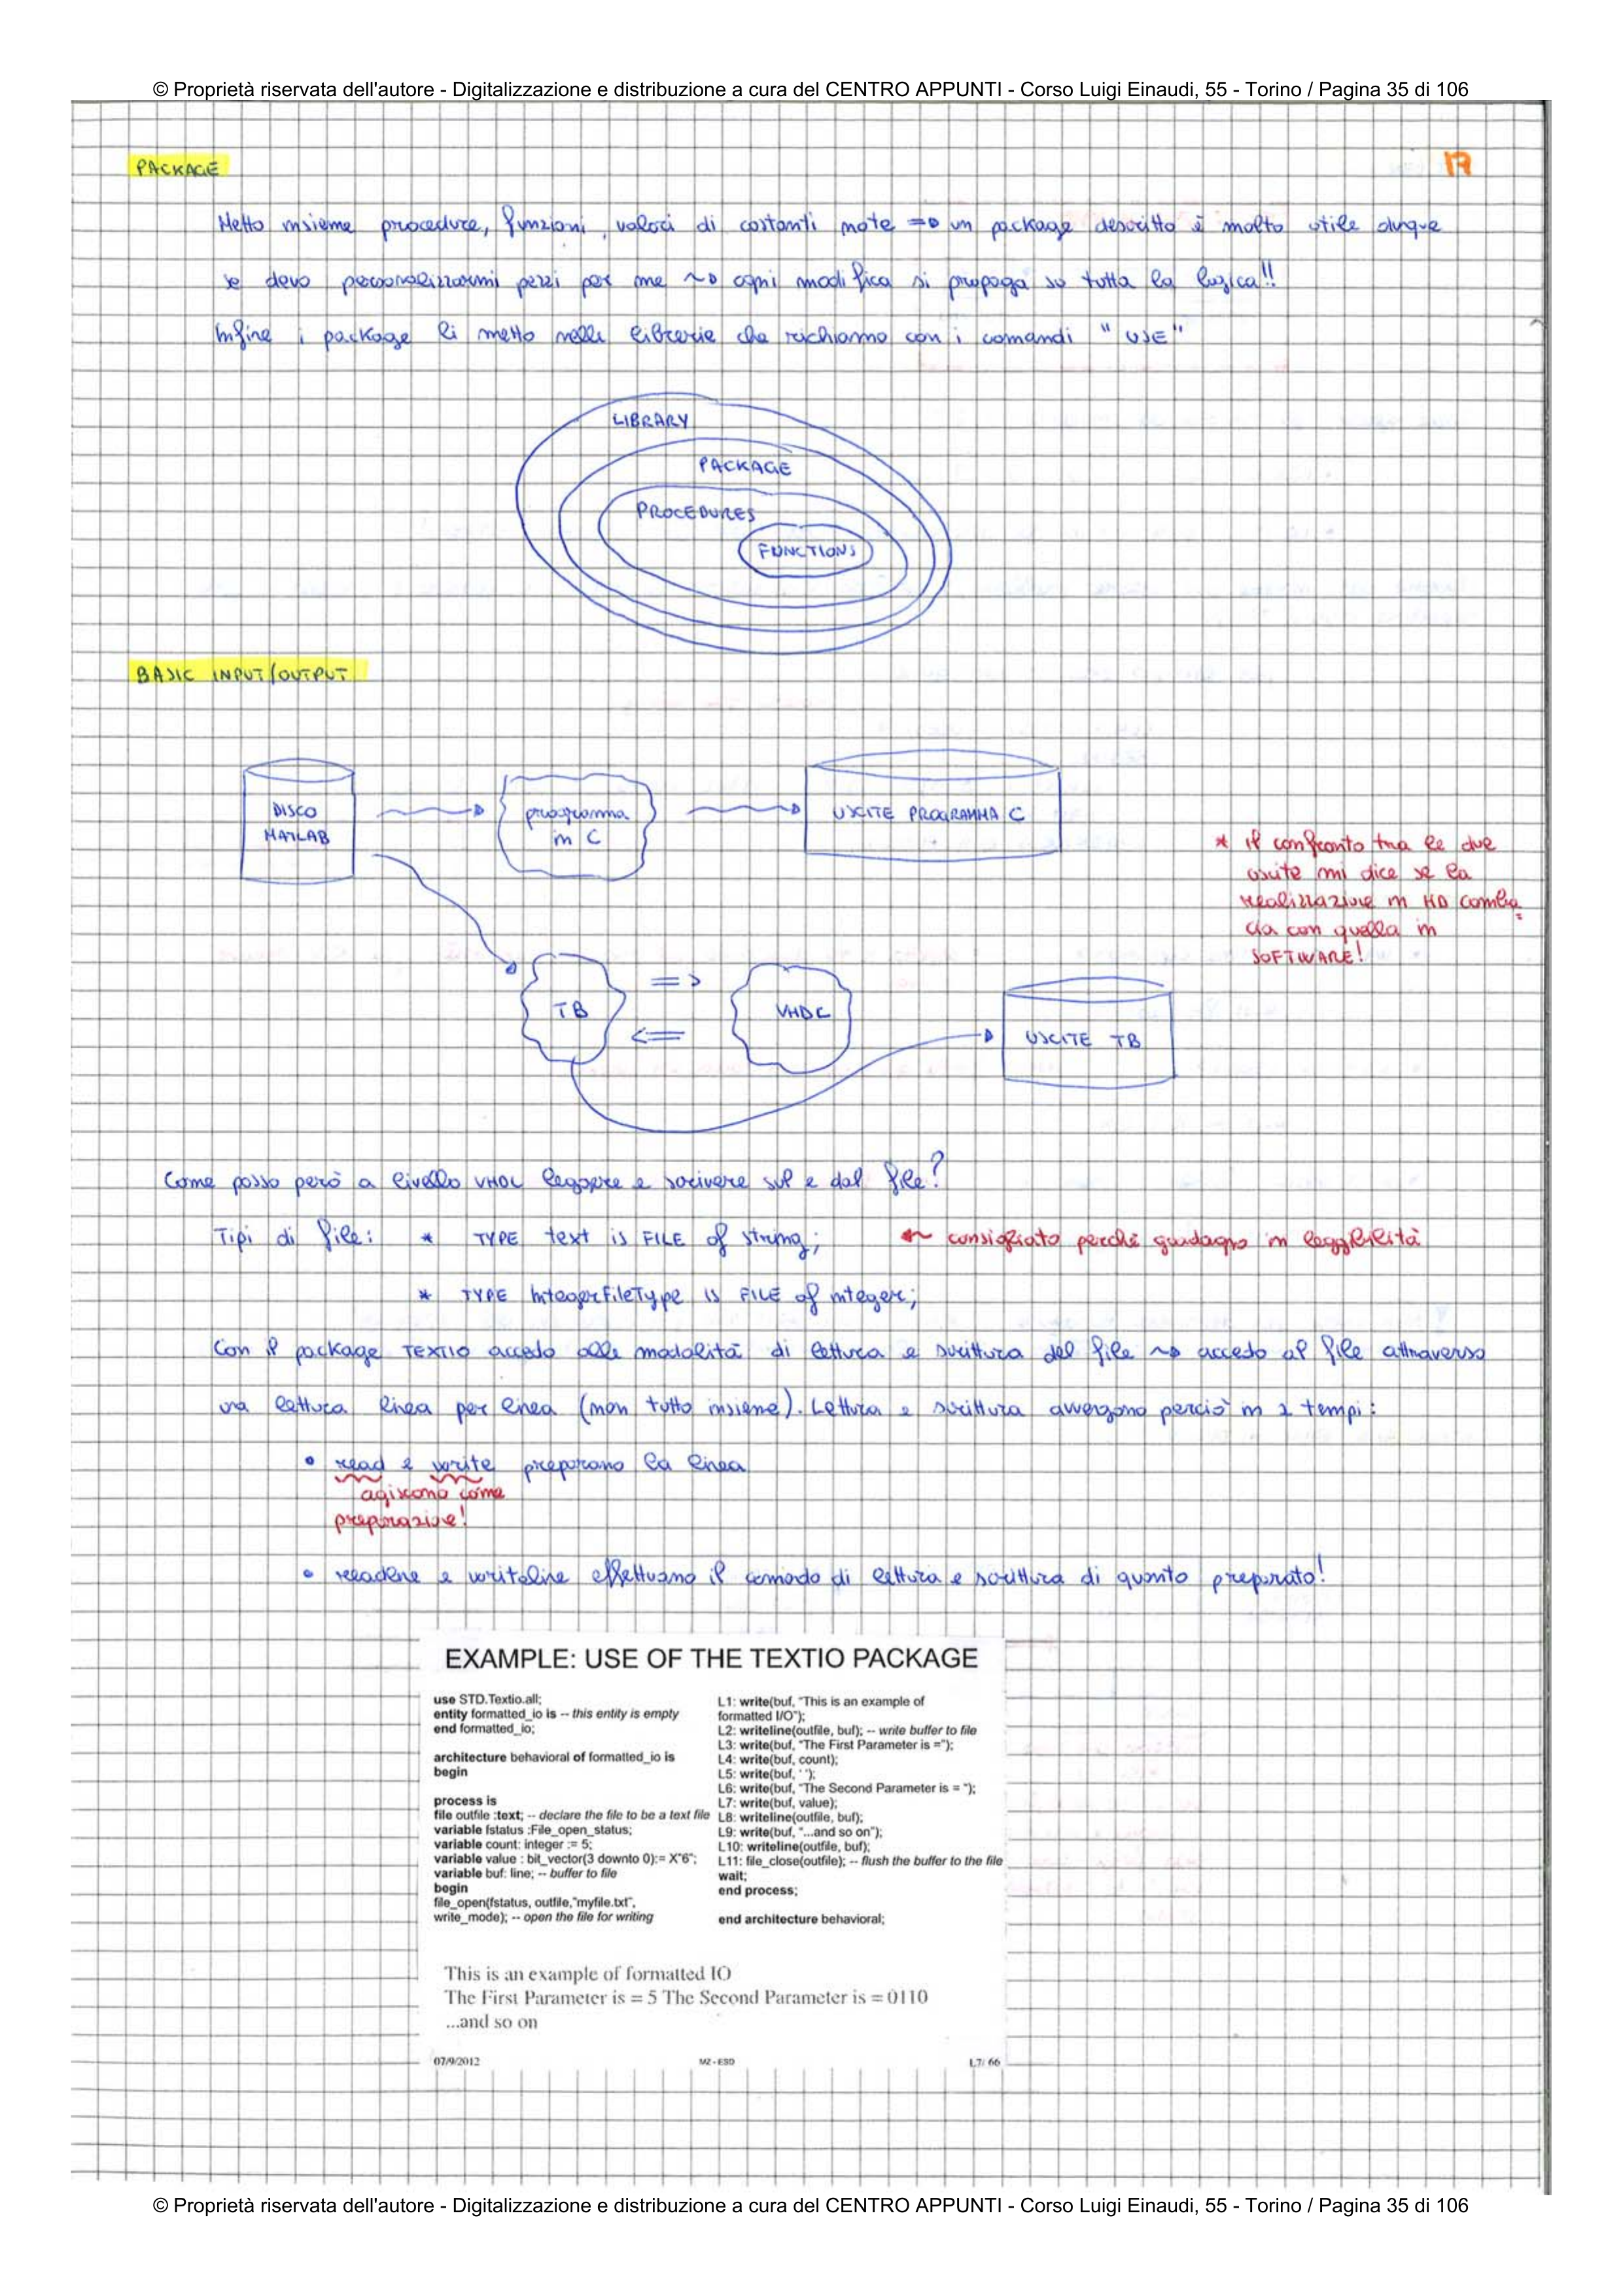 © Proprietà riservata dell'autore - Digitalizzazione e distribuzione a cura del CENTRO APPUNTI - Corso Luigi Einaudi, 55 - Torino / Pagina 35 di 106
17
PACKAGE
Metto insieme procedure, funzioni, valori di costanti note => un package descritto è molto utile dunque
se devo personalizzarmi pezzi per me ~> ogni modifica si propaga su tutta la logica!!
Infine i package li metto nelle librerie che richiamo con i comandi "USE"
LIBRARY
PACKAGE
PROCEDURES
FUNCTIONS
BASIC INPUT/OUTPUT
DISCO
MATLAB
programma
in C
USCITE PROGRAMMA C
* il confronto tra le due
uscite mi dice se la
realizzazione in HD comba
cia con quella in
SOFTWARE!
TB
=>
<=
VHDL
USCITE TB
Come posso però a livello VHDL leggere e scrivere sul e dal file?
Tipi di file: * TYPE text is FILE of string; consigliato perché guadagno in leggibilità
* TYPE IntegerFileType is FILE of integer;
Con il package TEXTIO accedo alle modalità di lettura e scrittura del file ~> accedo al file attraverso
una lettura linea per linea (non tutto insieme). Lettura e scrittura avvengono perciò in 2 tempi:
• read e write preparano la linea
agiscono come
preparazione!
• readline e writeline effettuano il comando di lettura e scrittura di quanto preparato!
EXAMPLE: USE OF THE TEXTIO PACKAGE
use STD.Textio.all;
entity formatted_io is -- this entity is empty
end formatted_io;
architecture behavioral of formatted_io is
begin
process is
file outfile :text; -- declare the file to be a text file
variable fstatus :File_open_status;
variable count: integer := 5;
variable value : bit_vector(3 downto 0):= X"6";
variable buf: line; -- buffer to file
begin
file_open(fstatus, outfile,"myfile.txt",
write_mode); -- open the file for writing
L1: write(buf, "This is an example of
formatted I/O");
L2: writeline(outfile, buf); -- write buffer to file
L3: write(buf, "The First Parameter is =");
L4: write(buf, count);
L5: write(buf, ' ');
L6: write(buf, "The Second Parameter is = ");
L7: write(buf, value);
L8: writeline(outfile, buf);
L9: write(buf, "...and so on");
L10: writeline(outfile, buf);
L11: file_close(outfile); -- flush the buffer to the file
wait;
end process;
end architecture behavioral;
This is an example of formatted IO
The First Parameter is = 5 The Second Parameter is = 0110
...and so on
07/9/2012
M2 - ESD
L7/ 66
© Proprietà riservata dell'autore - Digitalizzazione e distribuzione a cura del CENTRO APPUNTI - Corso Luigi Einaudi, 55 - Torino / Pagina 35 di 106